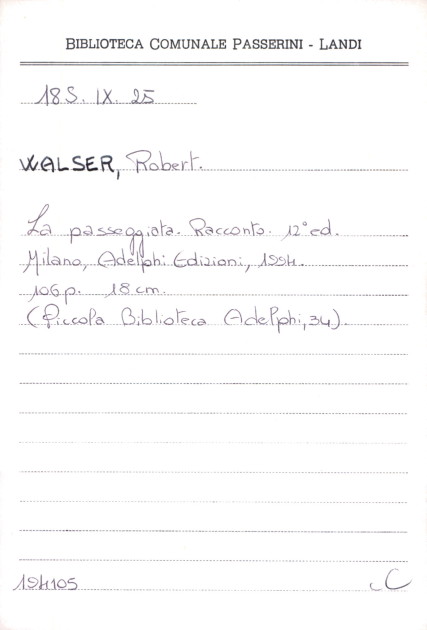 BIBLIOTECA COMUNALE PASSERINI - LANDI
18S. IX. 25
WALSER, Robert.
La passeggiata. Racconto. 12°ed.
Milano, Adelphi Edizioni, 1994.
106p. 18cm.
(Piccola Biblioteca Adelphi, 34).
194105 C